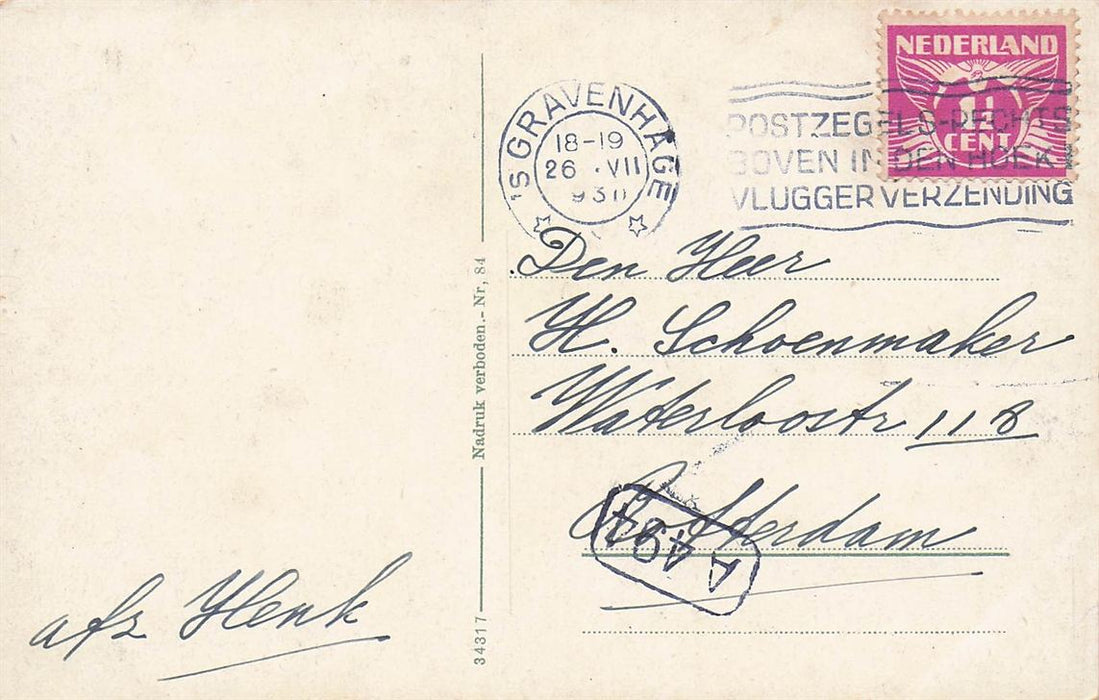 NEDERLAND
1½
CENT
'S GRAVENHAGE
18-19
26 .VII
193
POSTZEGELS-RECHTS
BOVEN IN DEN HOEK!
VLUGGER VERZENDING
Den Heer
H. Schoenmaker
Waterloostr 118
Rotterdam
A 49
afz Henk
34317
Nadruk verboden.-Nr, 84